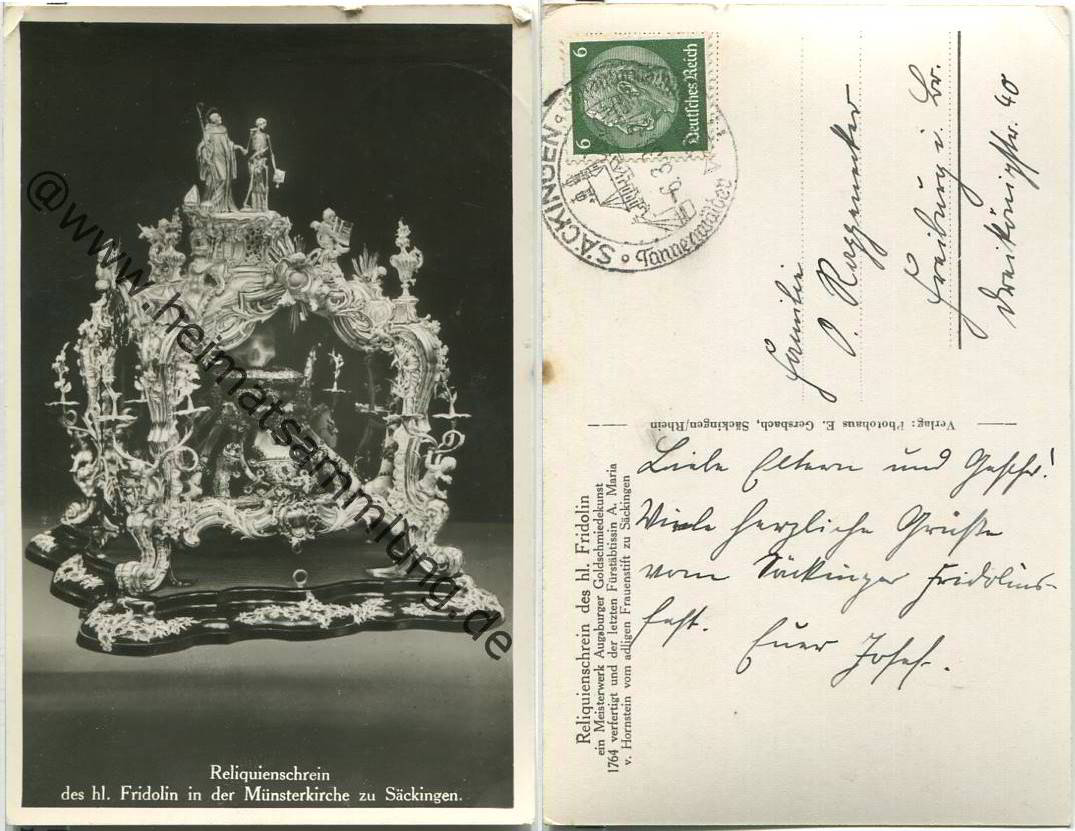 Reliquienschrein
des hl. Fridolin in der Münsterkirche zu Säckingen.
@www.heimatsammlung.de
6
6
Deutsches Reich
SÄCKINGEN
Familie
Freiburg i. Br.
Dreikönigstr. 40
Verlag: Photohaus E. Gersbach, Säckingen/Rhein
Reliquienschrein des hl. Fridolin
ein Meisterwerk Augsburger Goldschmiedekunst
1764 verfertigt und der letzten Fürstäbtissin A. Maria
v. Hornstein vom adligen Frauenstift zu Säckingen
Liebe Eltern und Geschw!
Viele herzliche Grüße
vom Säckinger Fridolins-
fest.
Euer Josef.